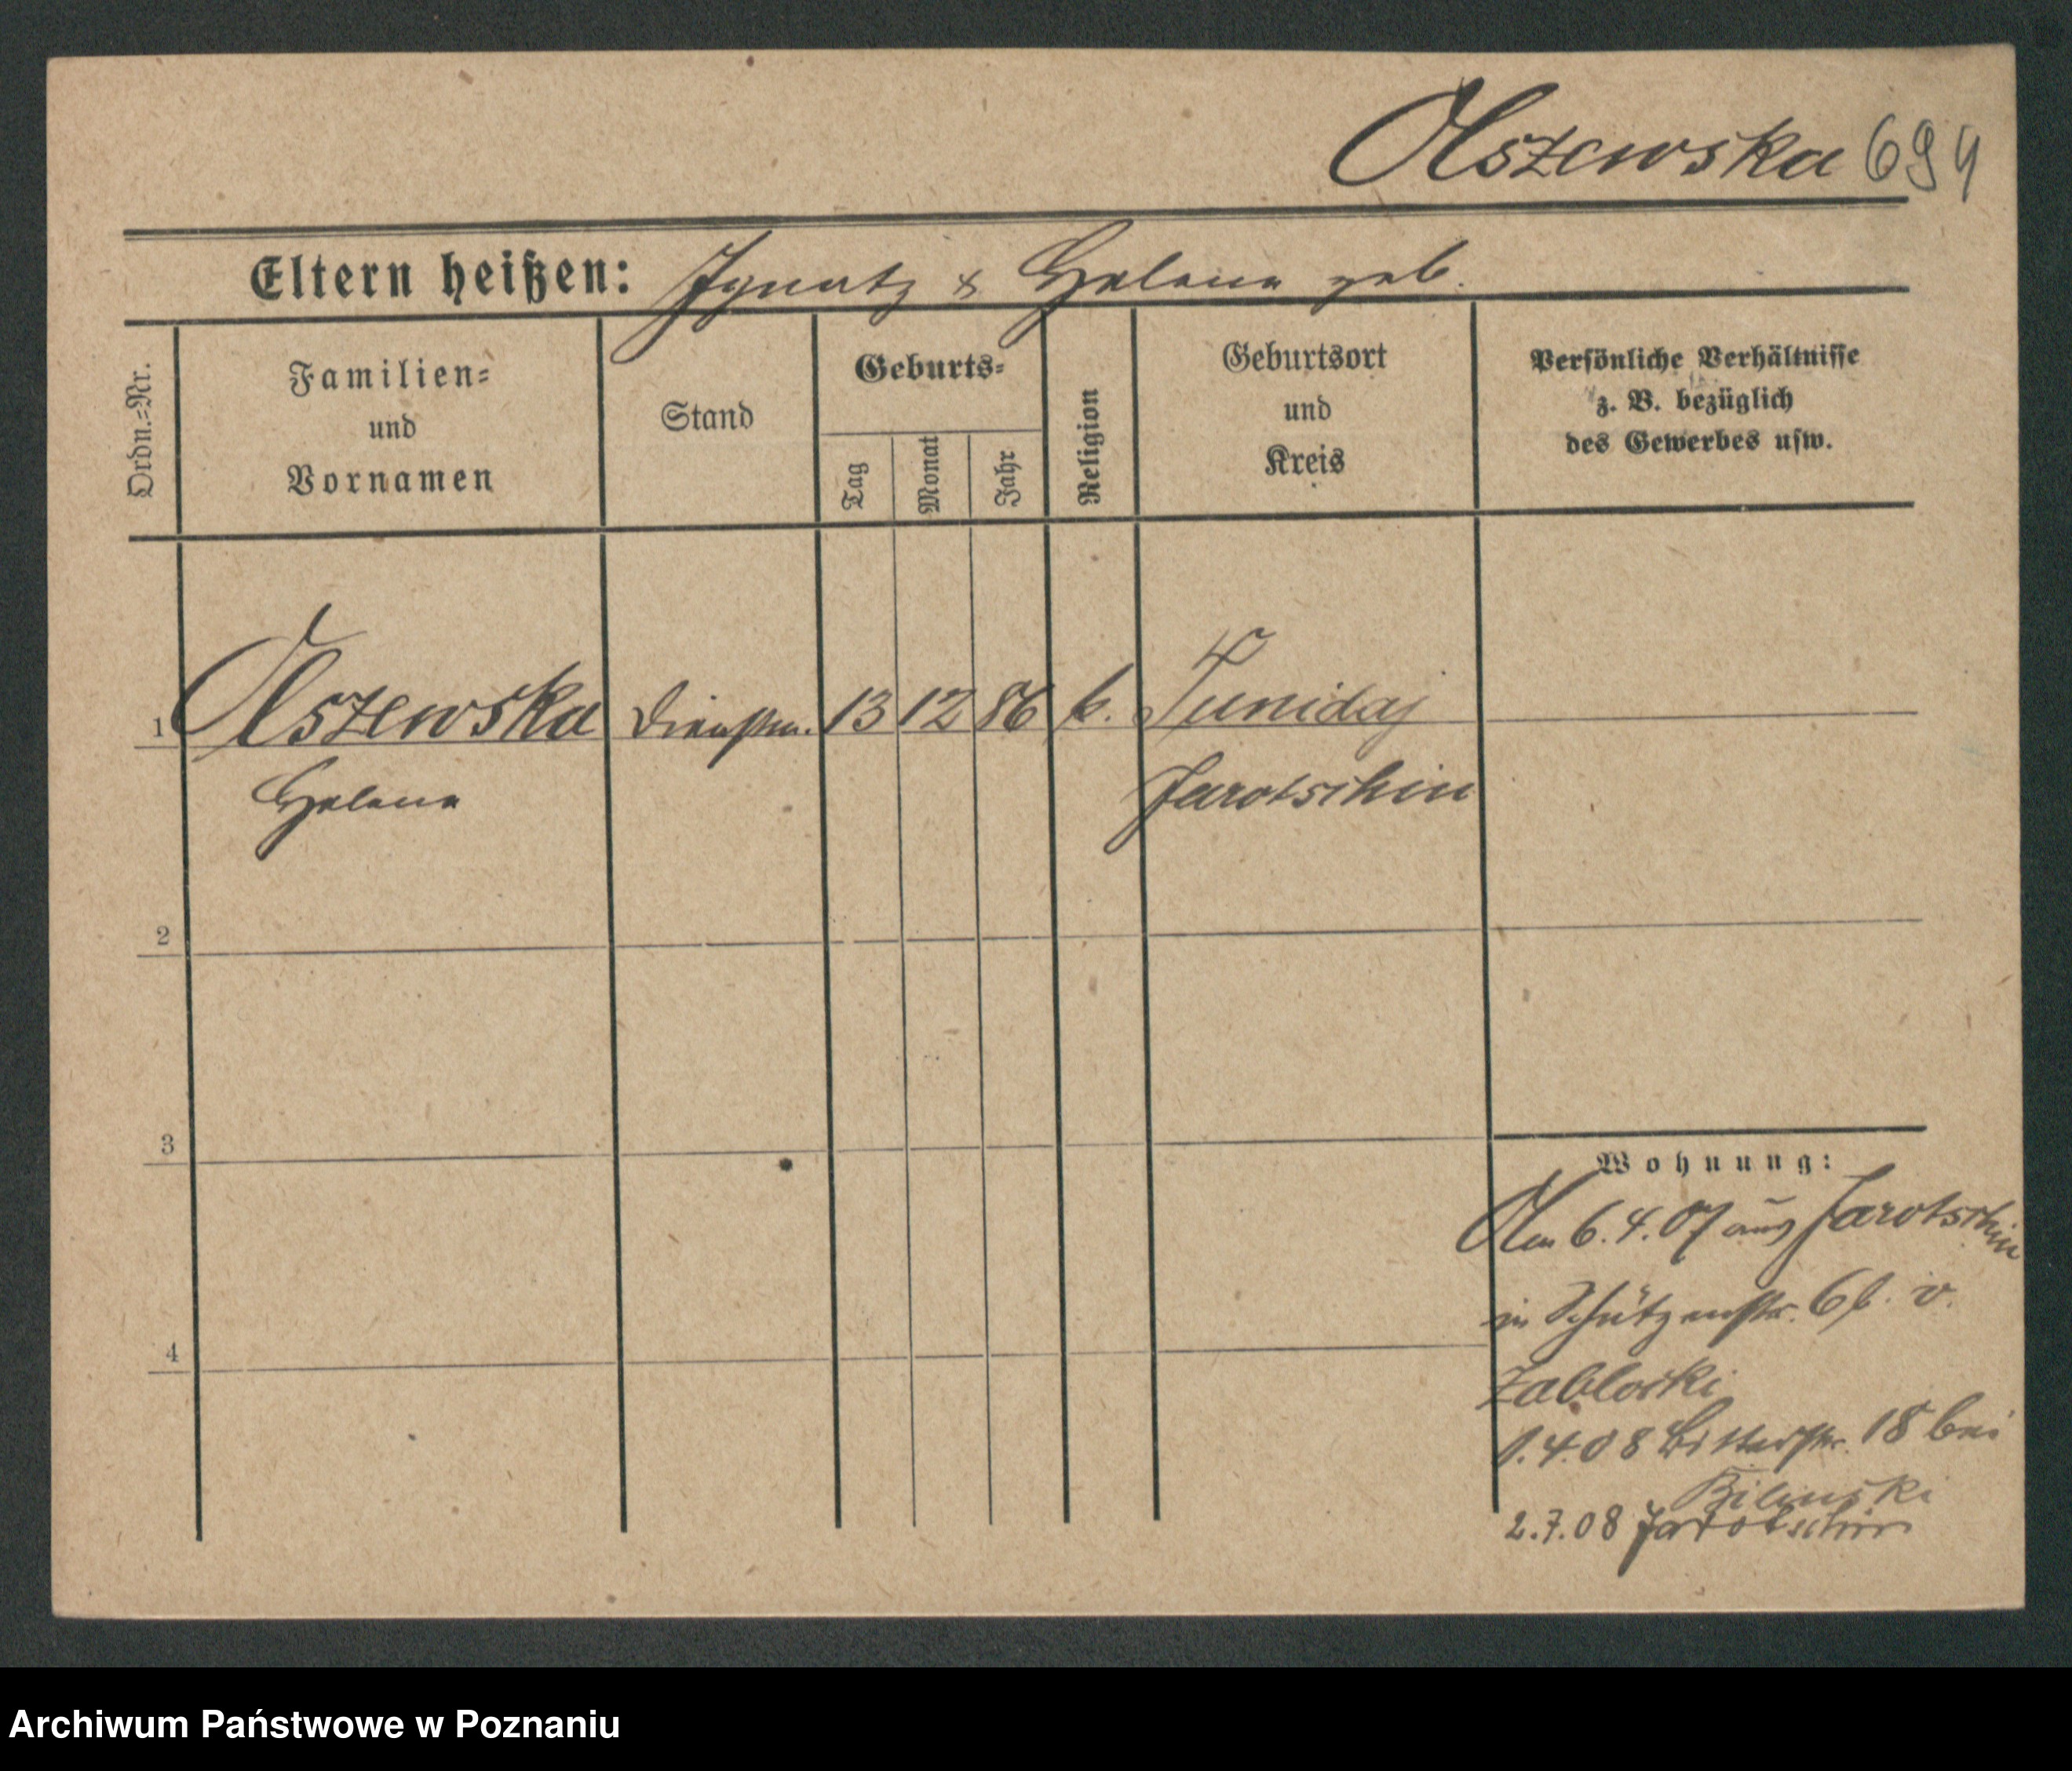 Olszewska 694
Eltern heißen: Ignatz & Helena geb.
Ordn.=Nr.
Familien=
und
Vornamen
Stand
Geburts=
Tag
Monat
Jahr
Religion
Geburtsort
und
Kreis
Persönliche Verhältnisse
z. B. bezüglich
des Gewerbes usw.
1 Olszewska Dienstm. 13 12 86 k.
Helena Jarotschin
2
3
4
Wohnung:
Am 6.4.07 aus Jarotschin
in Schützenstr. 6b. v.
Zablocki
1.4.08 Ritterstr. 18 bei
Bilinski
2.7.08 Jarotschin
Archiwum Państwowe w Poznaniu